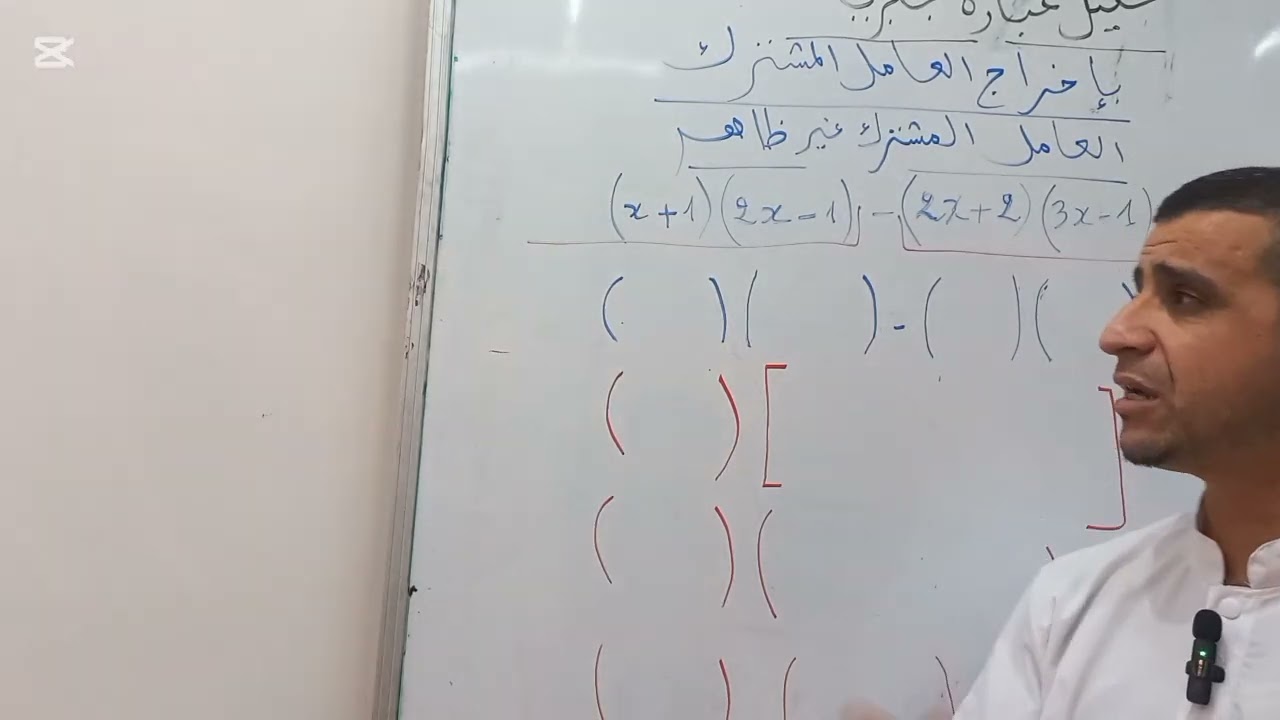 تحليل عبارة جبرية
بإخراج العامل المشترك
العامل المشترك غير ظاهر
(x+1)(2x-1) - (2x+2)(3x-1)
(    )(    ) - (    )(
(    )[    ]
(    )(    )
(    )(    )